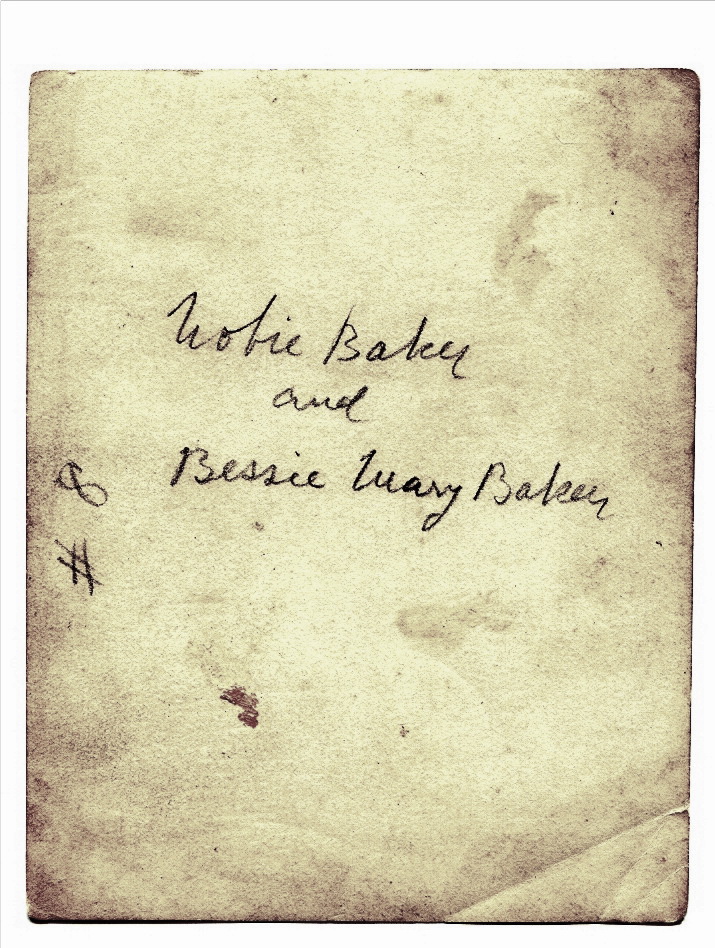 Nobie Baker
and
Bessie Mary Baker
# 8